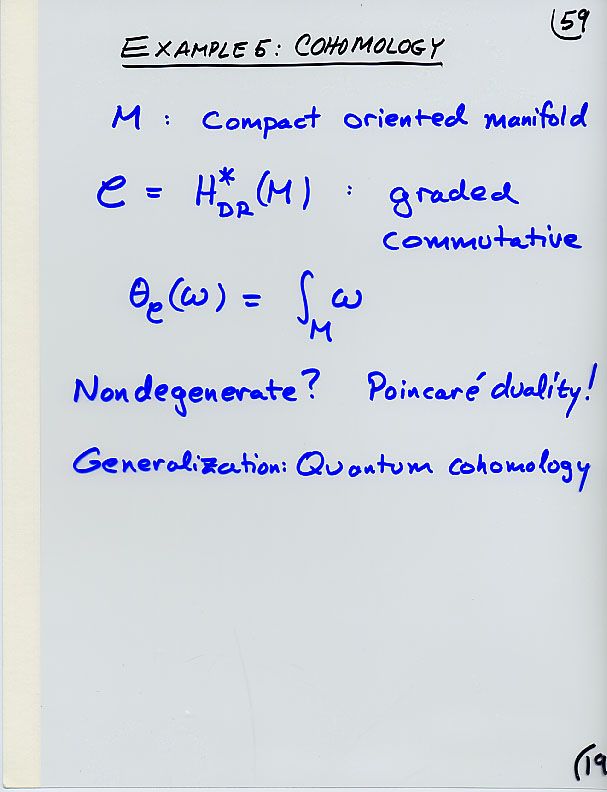 59
EXAMPLE 5: COHOMOLOGY
M : Compact oriented manifold
𝒞 = H*_DR(M) : graded
commutative
θ_𝒞(ω) = ∫_M ω
Nondegenerate? Poincaré duality!
Generalization: Quantum cohomology
19